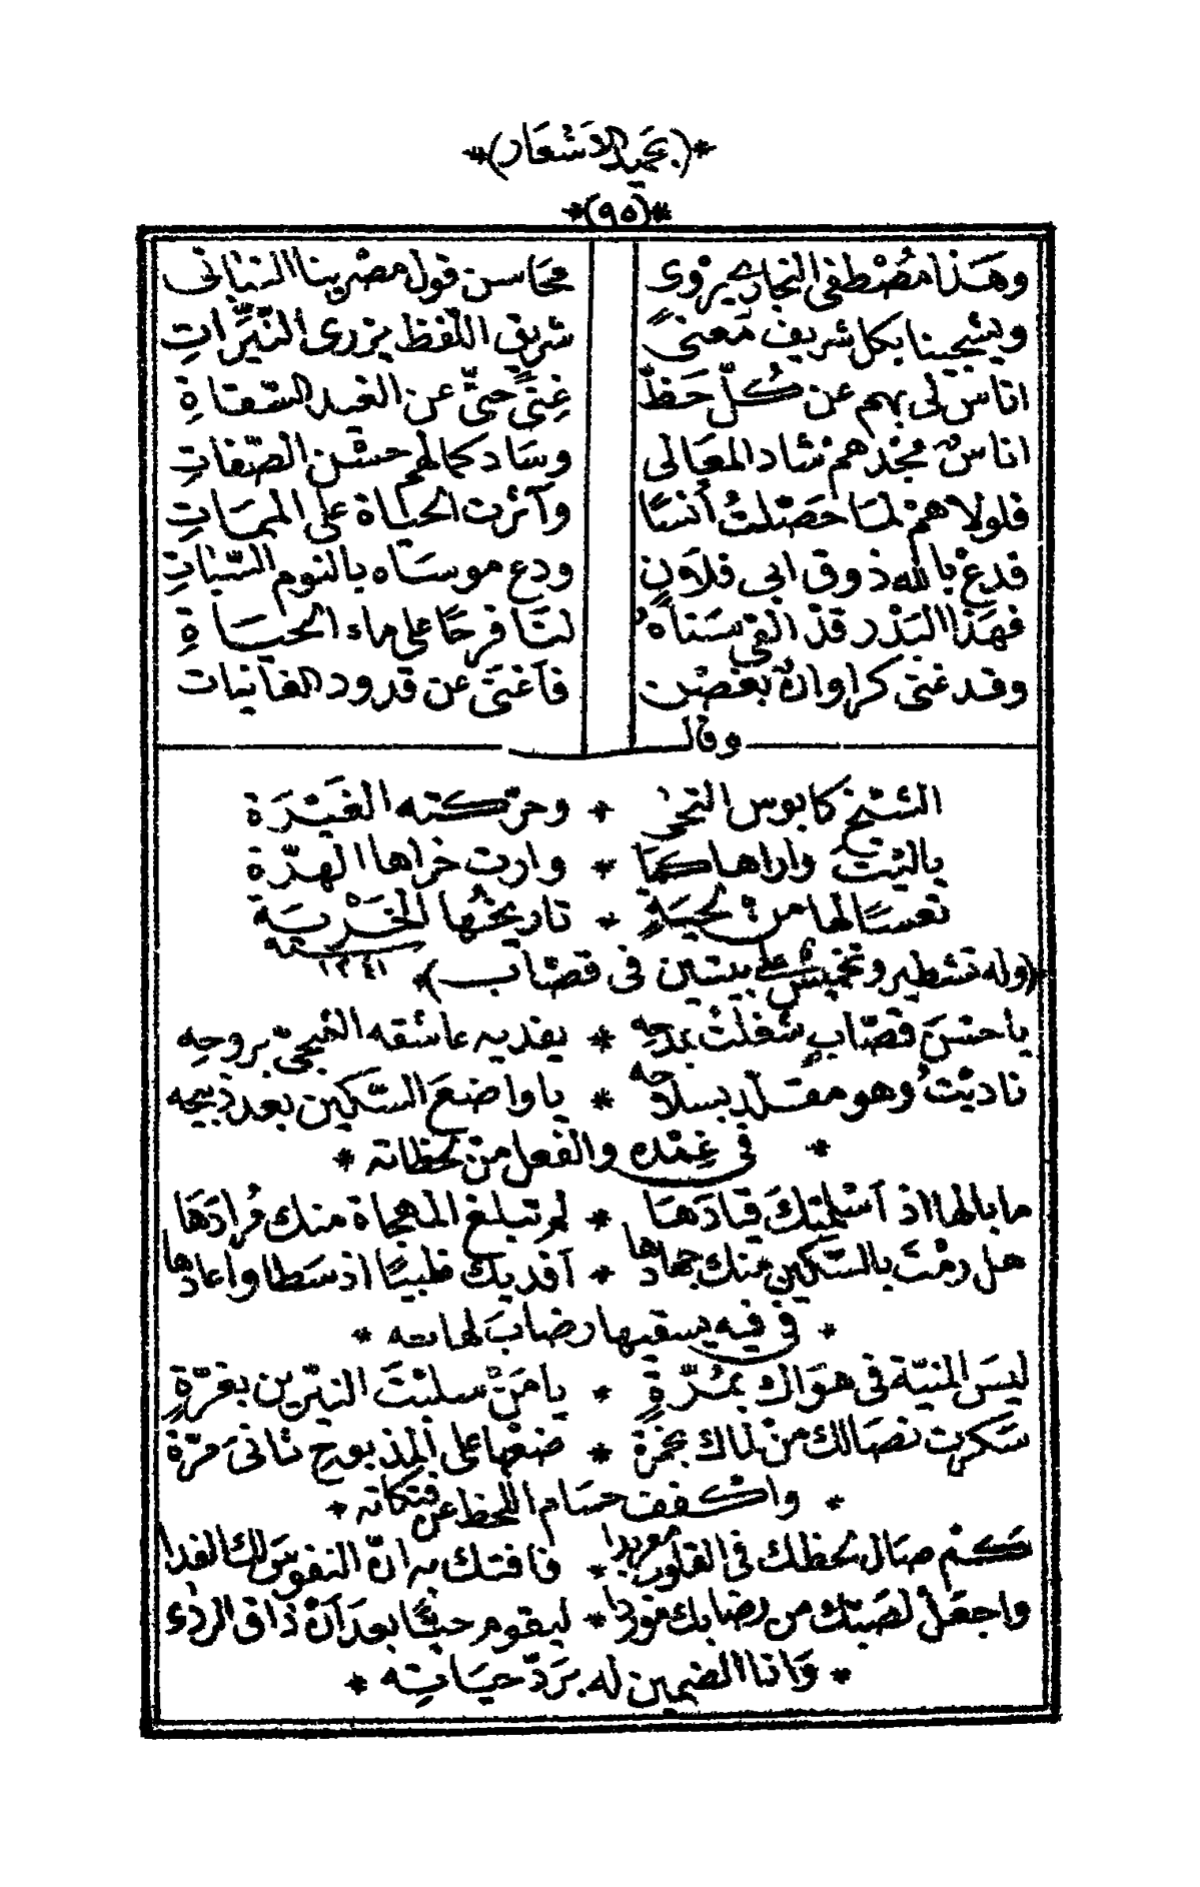 *(بحميد الاشعار)*
*(٩٥)*
وهذا مصطفى النجاري يروى محاسن قول مصرينا النباتى
ويشجينا بكل شريف معنىً شريق اللّفظ يزرى النّيّراتِ
اناس لى بهم عن كُلّ حَظّ غِنىً حتّى عن الغيد السّقاةِ
اناسٌ مجدهم شاد المعَالى وسَاد كمالهم حسْن الصّفاتِ
فلولاهمْ لمَا حَصّلتُ أنسًا وآثرت الحيَاة على الممَاتِ
فدعْ بالله ذوق ابى فلاونٍ ودع موسَاه بالنوم السّباتِ
فهَذا البَدْر قدْ القى سَناهُ لنَا فرحًا على ماء الحيَاةِ
وقد غنى كراوانٌ بغصْن فاَغنَى عن قدود الغانيات
وقال
الشيْخ كابوس التحى * وحرّكته الغيْرَة
بالبيْت واراها كمَا * وارت خراها الهرّة
تعسًا لها منْ لحيَةٍ * تاريخُها الخَرْيَة
سنة ١٢٤١
(وله تشطير وتخميس على بيتين فى قصّاب)
ياحسْنَ قصّابٍ شغلتْ بمدحِه * يفديه عاشقه الشجىّ بروحِه
ناديْتُ وهو مقلّد بسلاحه * يا واضعَ السّكين بعد ذبيحه
* فى غِمْده والفعل منْ لحظاته *
ما بالها اذ اَسْلمتكَ قيادَهَا * لم تبلغ المهجاة منك مُرادَهَا
هل رمْتَ بالسّكين منك جهادها * اَفديك ظبيًا اذ سَطا واَعادها
* فى فيه يسقيها رضابَ لهاته *
ليسَ المنيّة فى هوَاك بمُرّةٍ * يا مَنْ سلبْتَ النيّرين بغرّةٍ
سَكرت نصَالك منْ لماك بخمرة * ضعْها على المذبوح ثانىَ مرّة
* واكفف حسَام اللّحظ عن فتكاته *
كمْ صَال لحظك فى القلوب معربدا * فافتك به انّ النفوسَ لك الفدا
واجعَلْ لصَبّك من رضابك موردا * ليقوم حيًّا بعد اَنْ ذاق الردَء
* وَانا الضمين له برَدّ حيَاتِه *